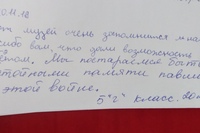 0.11.18
музей очень запомнился мно
вам, что дали возможность
Мы постараемся быть
памяти павши
этой войне.
5 "г" класс.